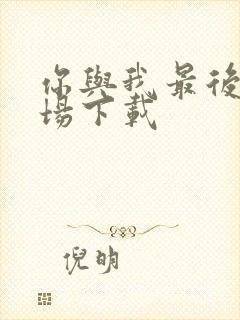 你與我最後
場下載
倪明